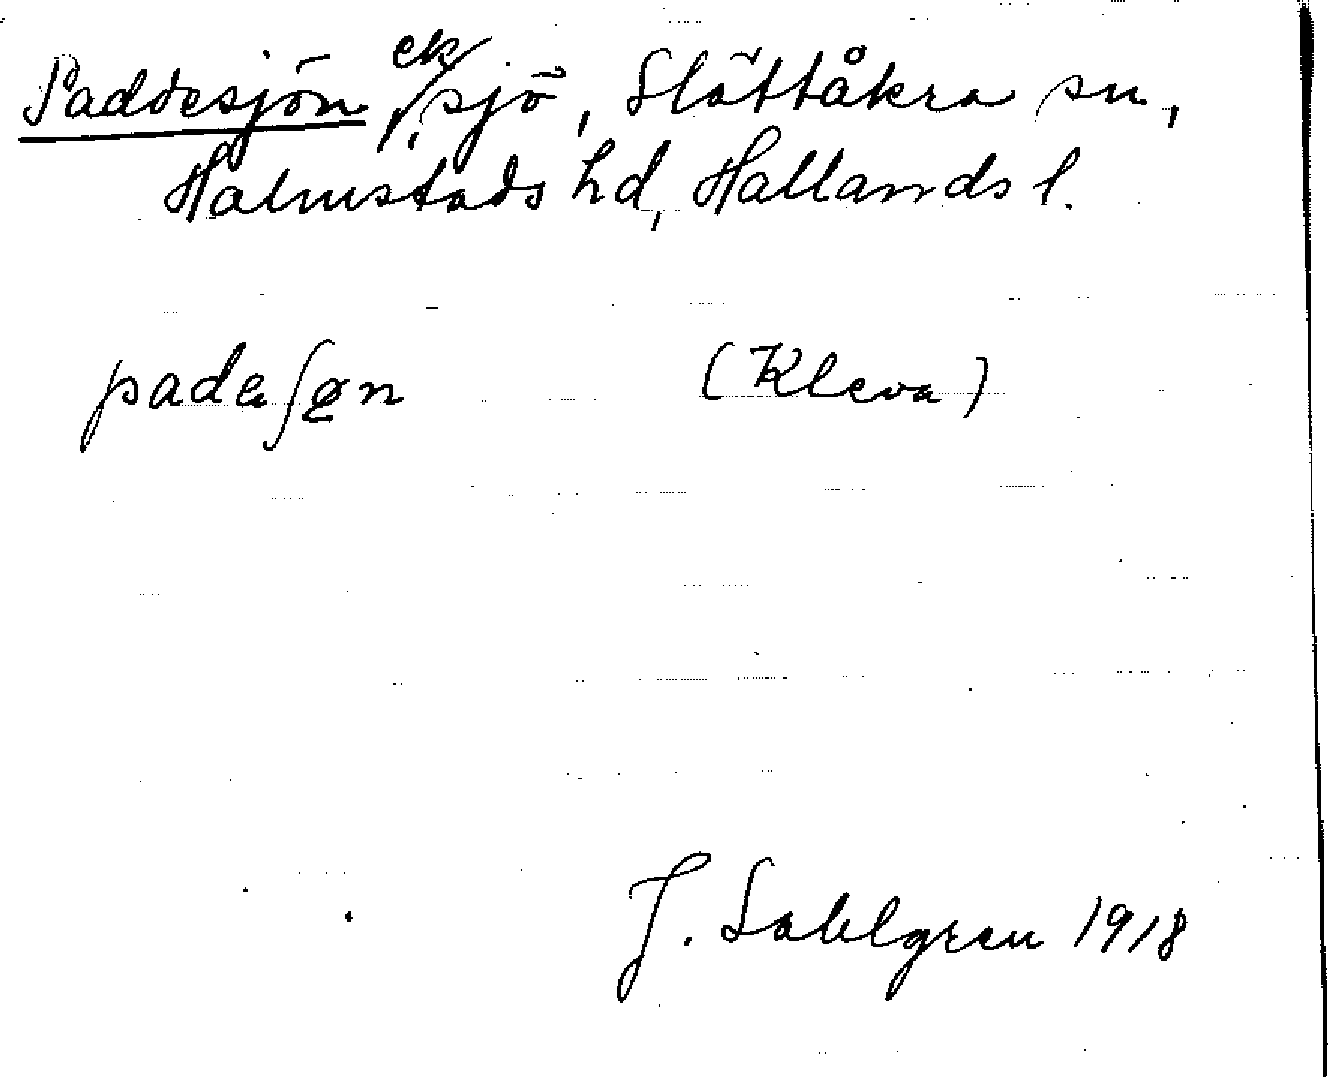 Paddesjön ek, sjö, Slättåkra sn,
Halmstads hd, Hallands l.
padeʃøn (Kleva)
J. Sahlgren 1918